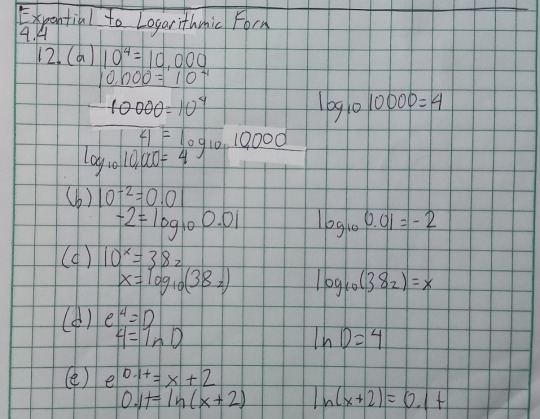 Expential to Logarithmic Form
4.4
12. (a) 10⁴ = 10,000
10,000 = 10⁴
10000 = 10⁴ log₁₀ 10000 = 4
4 = log₁₀ 10,000
log₁₀ 10,000 = 4
(b) 10⁻² = 0.01
-2 = log₁₀ 0.01 log₁₀ 0.01 = -2
(c) 10ˣ = 38z
x = log₁₀(38z) log₁₀(38z) = x
(d) e⁴ = D
4 = ln D ln D = 4
(e) e^0.1t = x + 2
0.1t = ln(x+2) ln(x+2) = 0.1t